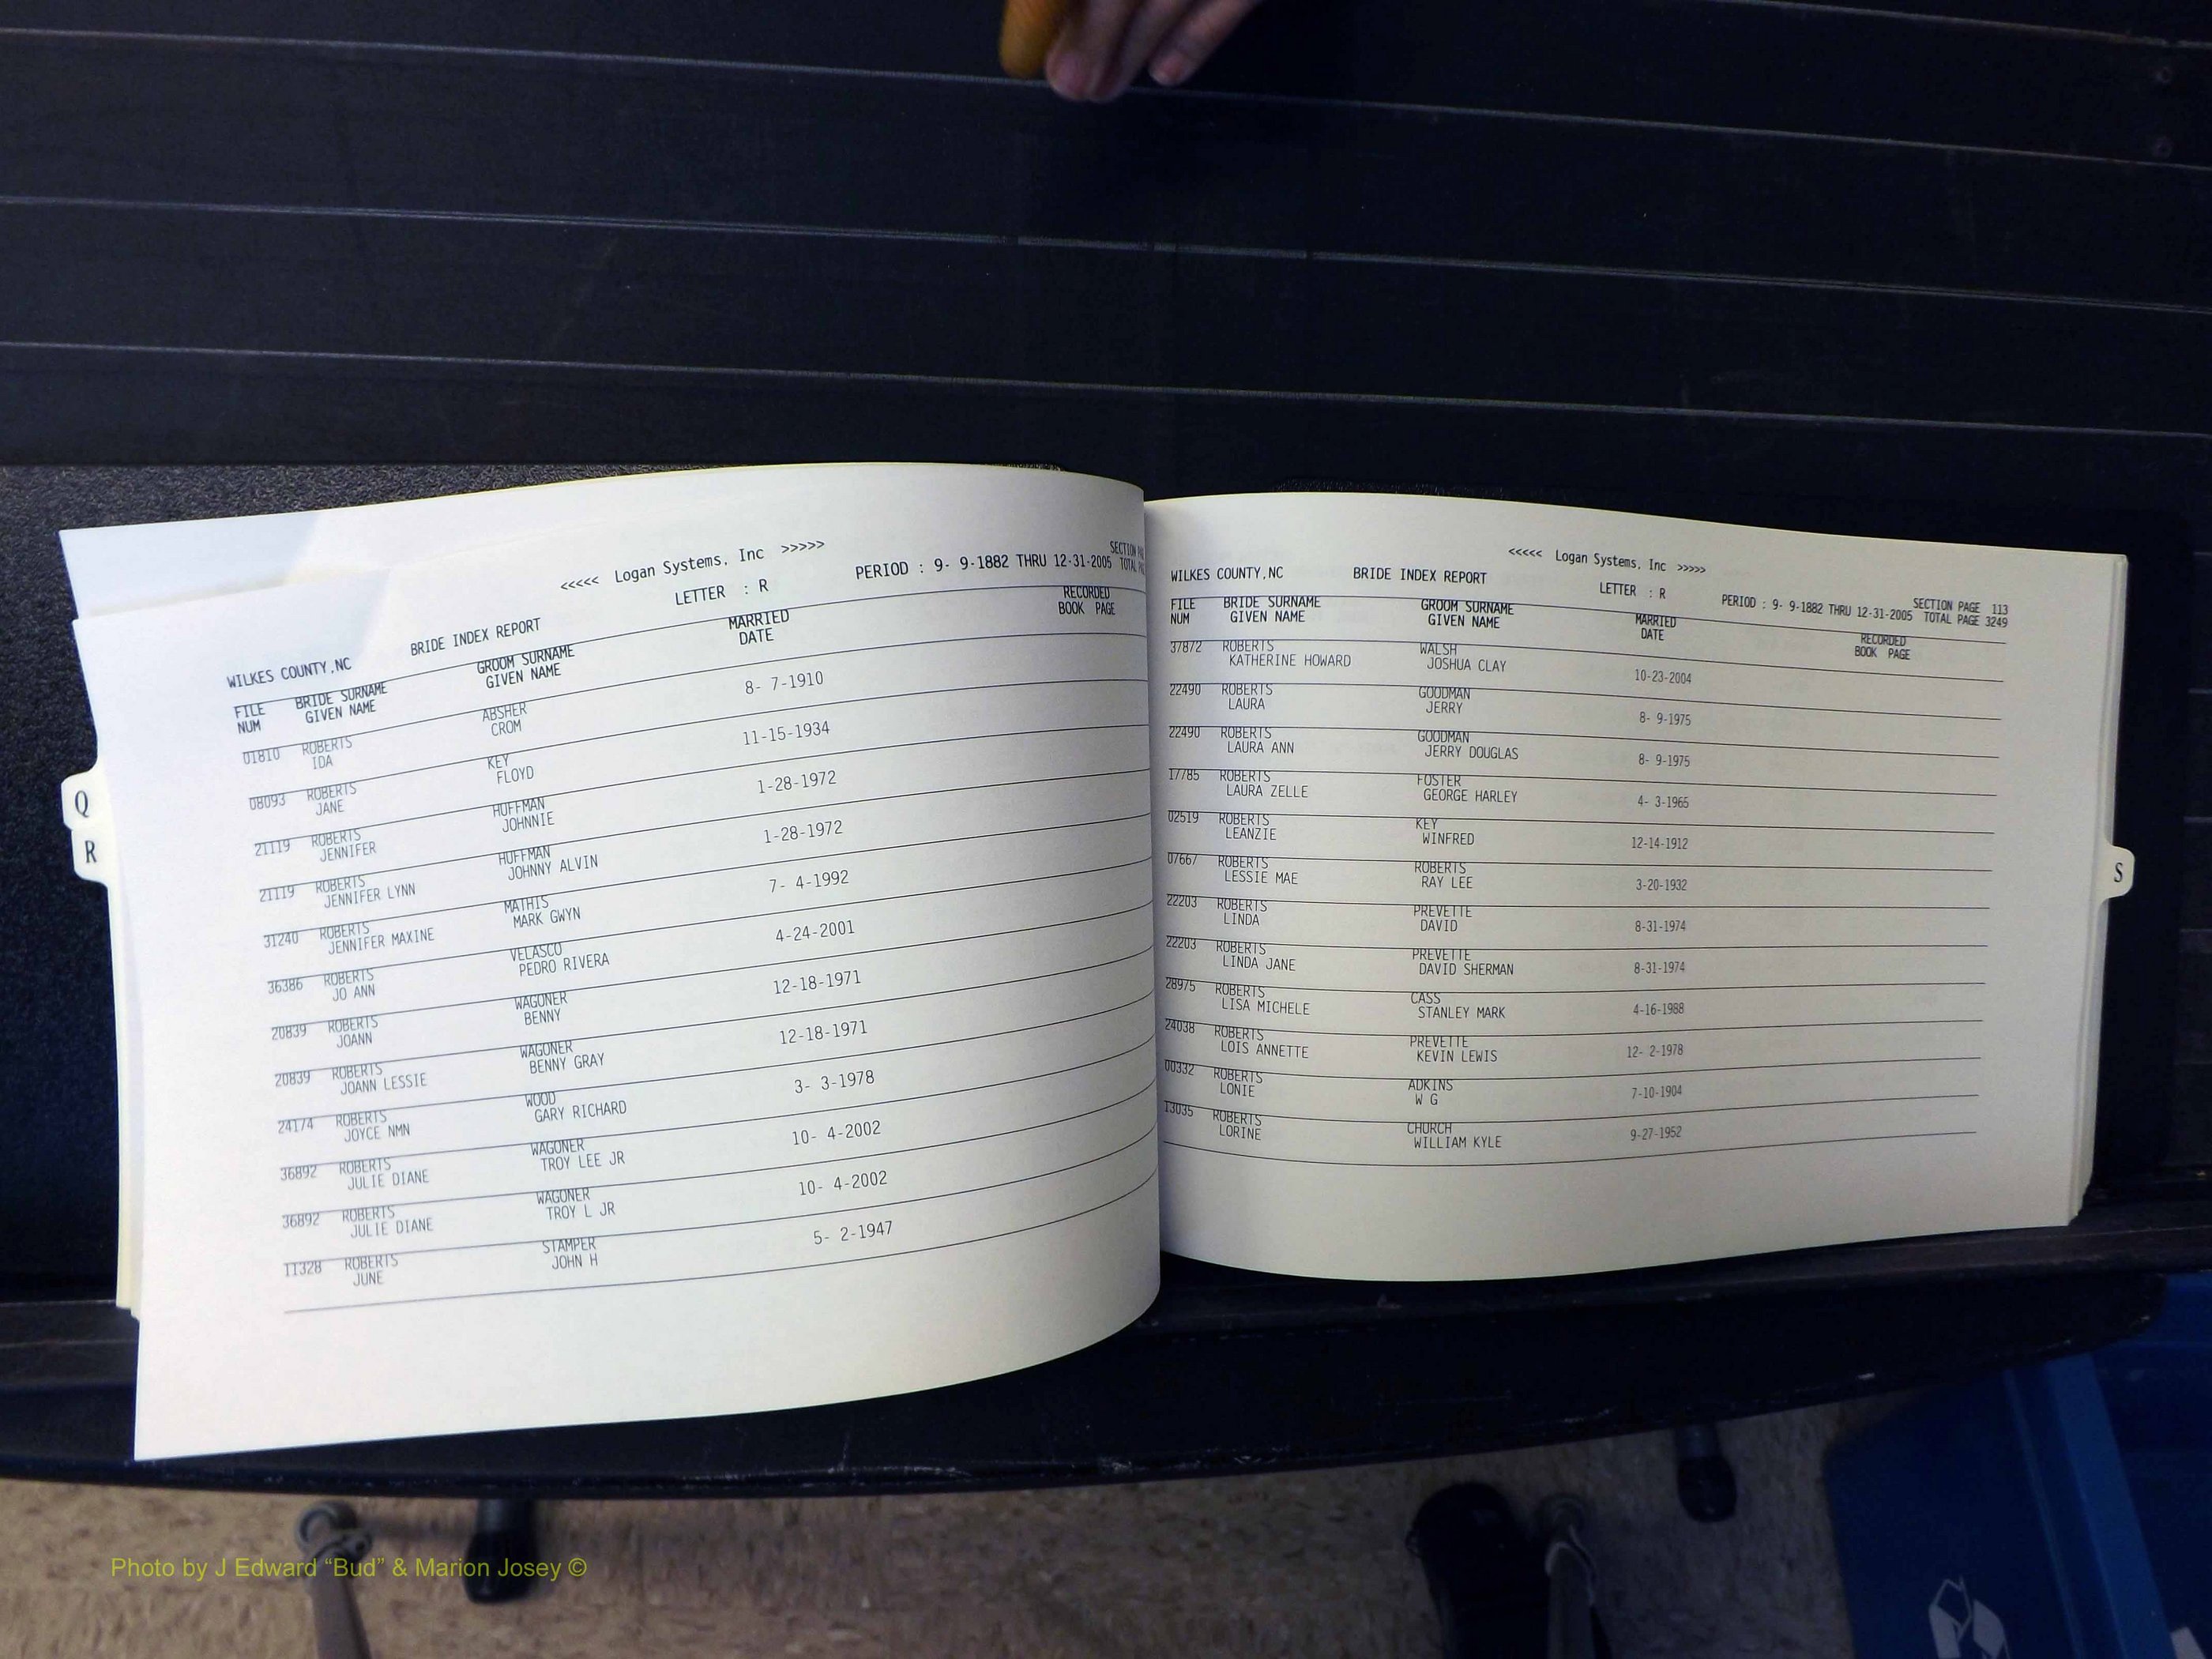 <<<<< Logan Systems, Inc >>>>>
SECTION
WILKES COUNTY,NC BRIDE INDEX REPORT LETTER : R PERIOD : 9- 9-1882 THRU 12-31-2005 TOTAL
FILE BRIDE SURNAME GROOM SURNAME MARRIED RECORDED
NUM GIVEN NAME GIVEN NAME DATE BOOK PAGE
01810 ROBERTS ABSHER 8- 7-1910
IDA CROM
08093 ROBERTS KEY 11-15-1934
JANE FLOYD
21119 ROBERTS HUFFMAN 1-28-1972
JENNIFER JOHNNIE
21119 ROBERTS HUFFMAN 1-28-1972
JENNIFER LYNN JOHNNY ALVIN
31240 ROBERTS MATHIS 7- 4-1992
JENNIFER MAXINE MARK GWYN
36386 ROBERTS VELASCO 4-24-2001
JO ANN PEDRO RIVERA
20839 ROBERTS WAGONER 12-18-1971
JOANN BENNY
20839 ROBERTS WAGONER 12-18-1971
JOANN LESSIE BENNY GRAY
24174 ROBERTS WOOD 3- 3-1978
JOYCE NMN GARY RICHARD
36892 ROBERTS WAGONER 10- 4-2002
JULIE DIANE TROY LEE JR
36892 ROBERTS WAGONER 10- 4-2002
JULIE DIANE TROY L JR
11328 ROBERTS STAMPER 5- 2-1947
JUNE JOHN H
Q
R
<<<<< Logan Systems, Inc >>>>>
SECTION PAGE 113
WILKES COUNTY,NC BRIDE INDEX REPORT LETTER : R PERIOD : 9- 9-1882 THRU 12-31-2005 TOTAL PAGE 3249
FILE BRIDE SURNAME GROOM SURNAME MARRIED RECORDED
NUM GIVEN NAME GIVEN NAME DATE BOOK PAGE
37872 ROBERTS WALSH
KATHERINE HOWARD JOSHUA CLAY 10-23-2004
22490 ROBERTS GOODMAN
LAURA JERRY 8- 9-1975
22490 ROBERTS GOODMAN
LAURA ANN JERRY DOUGLAS 8- 9-1975
17785 ROBERTS FOSTER
LAURA ZELLE GEORGE HARLEY 4- 3-1965
02519 ROBERTS KEY
LEANZIE WINFRED 12-14-1912
07667 ROBERTS ROBERTS
LESSIE MAE RAY LEE 3-20-1932
22203 ROBERTS PREVETTE
LINDA DAVID 8-31-1974
22203 ROBERTS PREVETTE
LINDA JANE DAVID SHERMAN 8-31-1974
28975 ROBERTS CASS
LISA MICHELE STANLEY MARK 4-16-1988
24038 ROBERTS PREVETTE
LOIS ANNETTE KEVIN LEWIS 12- 2-1978
00332 ROBERTS ADKINS
LONIE W G 7-10-1904
13035 ROBERTS CHURCH
LORINE WILLIAM KYLE 9-27-1952
S
Photo by J Edward “Bud” & Marion Josey ©